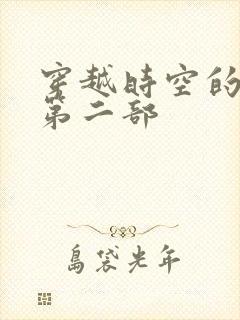 穿越時空的
第二部
島袋光年